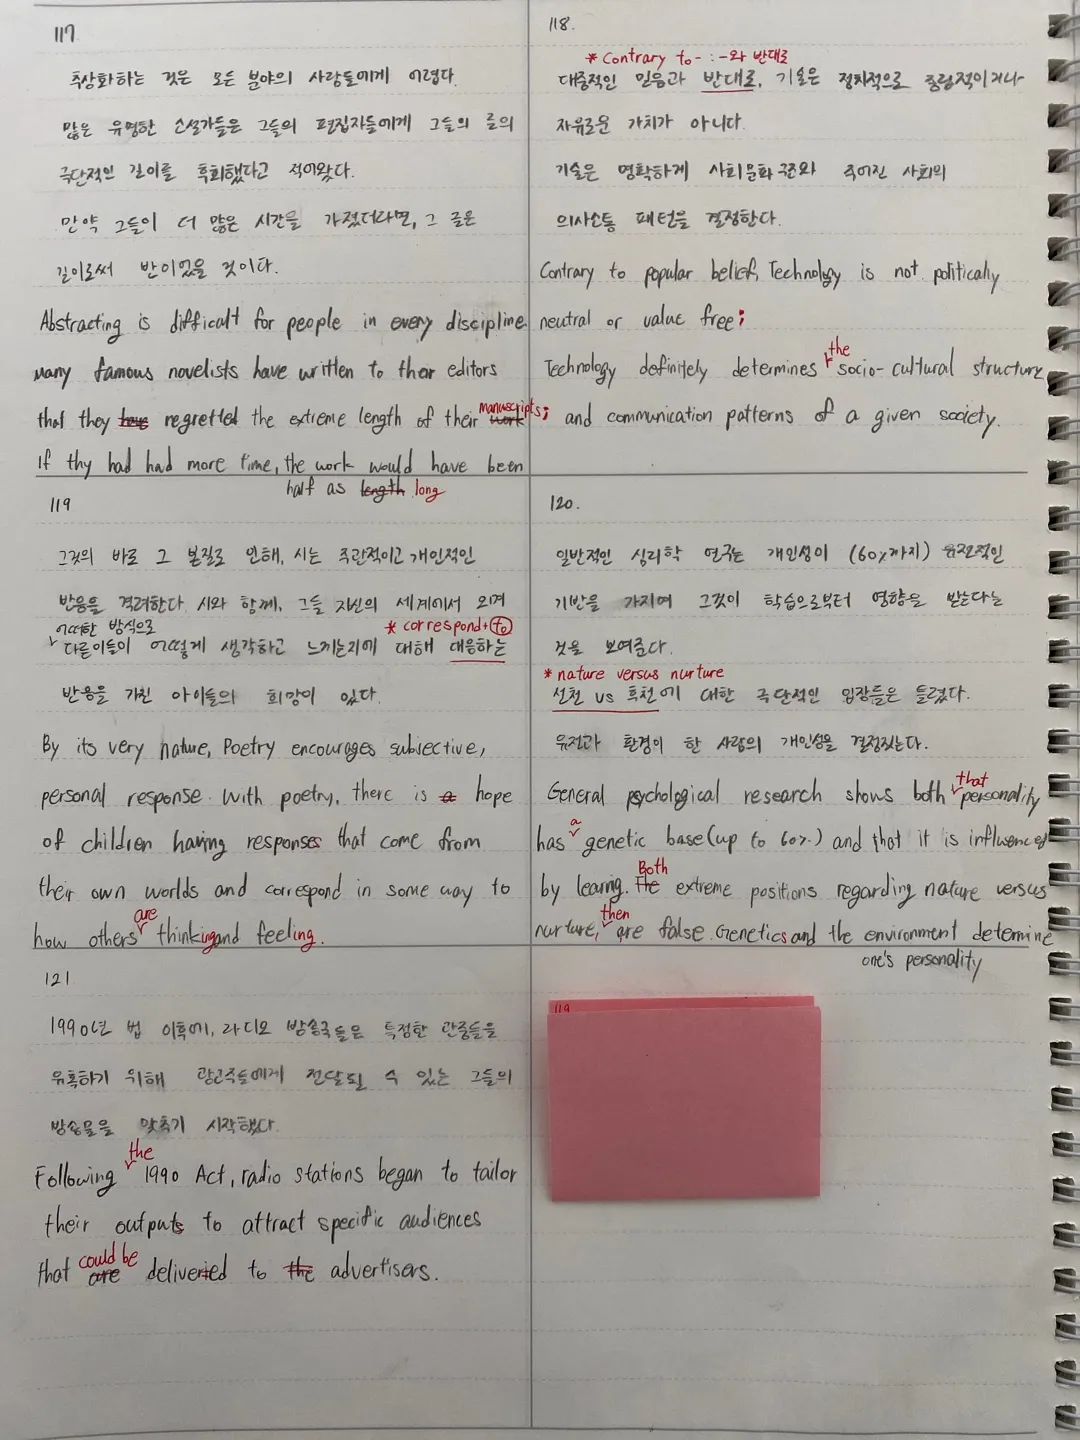 117
추상화하는 것은 모든 분야의 사람들에게 어렵다.
많은 유명한 소설가들은 그들의 편집자들에게 그들의 글의
극단적인 길이를 후회했다고 적어왔다.
만약 그들이 더 많은 시간을 가졌더라면, 그 글은
길이로써 반이었을 것이다.
Abstracting is difficult for people in every discipline.
many famous novelists have written to their editors
that they have regretted the extreme length of their work manuscripts;
If thy had had more time, the work would have been
half as length long
118.
* Contrary to - : -와 반대로
대중적인 믿음과 반대로, 기술은 정치적으로 중립적이거나
자유로운 가치가 아니다.
기술은 명확하게 사회문화 구조와 주어진 사회의
의사소통 패턴을 결정한다.
Contrary to popular belief, Technology is not politically
neutral or value free;
the
Technology definitely determines socio-cultural structure
and communication patterns of a given society.
119
그것의 바로 그 본질로 인해, 시는 주관적이고 개인적인
반응을 격려한다 시와 함께, 그들 자신의 세계에서 오게
어떠한 방식으로
* correspond + to
다른이들이 어떻게 생각하고 느끼는지에 대해 대응하는
반응을 가진 아이들의 희망이 있다.
By its very nature, Poetry encourages subjective,
personal response. With poetry, there is a hope
of children having responses that come from
their own worlds and correspond in some way to
are
how others thinking and feeling.
120.
일반적인 심리학 연구는 개인성이 (60%까지) 유전적인
기반을 가지며 그것이 학습으로부터 영향을 받는다는
것을 보여준다.
* nature versus nurture
선천 vs 후천에 대한 극단적인 입장들은 틀렸다.
유전과 환경이 한 사람의 개인성을 결정짓는다.
that
General psychological research shows both personality
a
has genetic base (up to 60%) and that it is influenced
Both
by learing. The extreme positions regarding nature versus
then
nurture, are false. Genetics and the environment determine
one's personality
121
1990년 법 이후에, 라디오 방송국들은 특정한 관중들을
유혹하기 위해 광고주들에게 전달될 수 있는 그들의
방송물을 맞추기 시작했다.
the
Following 1990 Act, radio stations began to tailor
their outputs to attract specific audiences
could be
that are delivered to the advertisers.
119